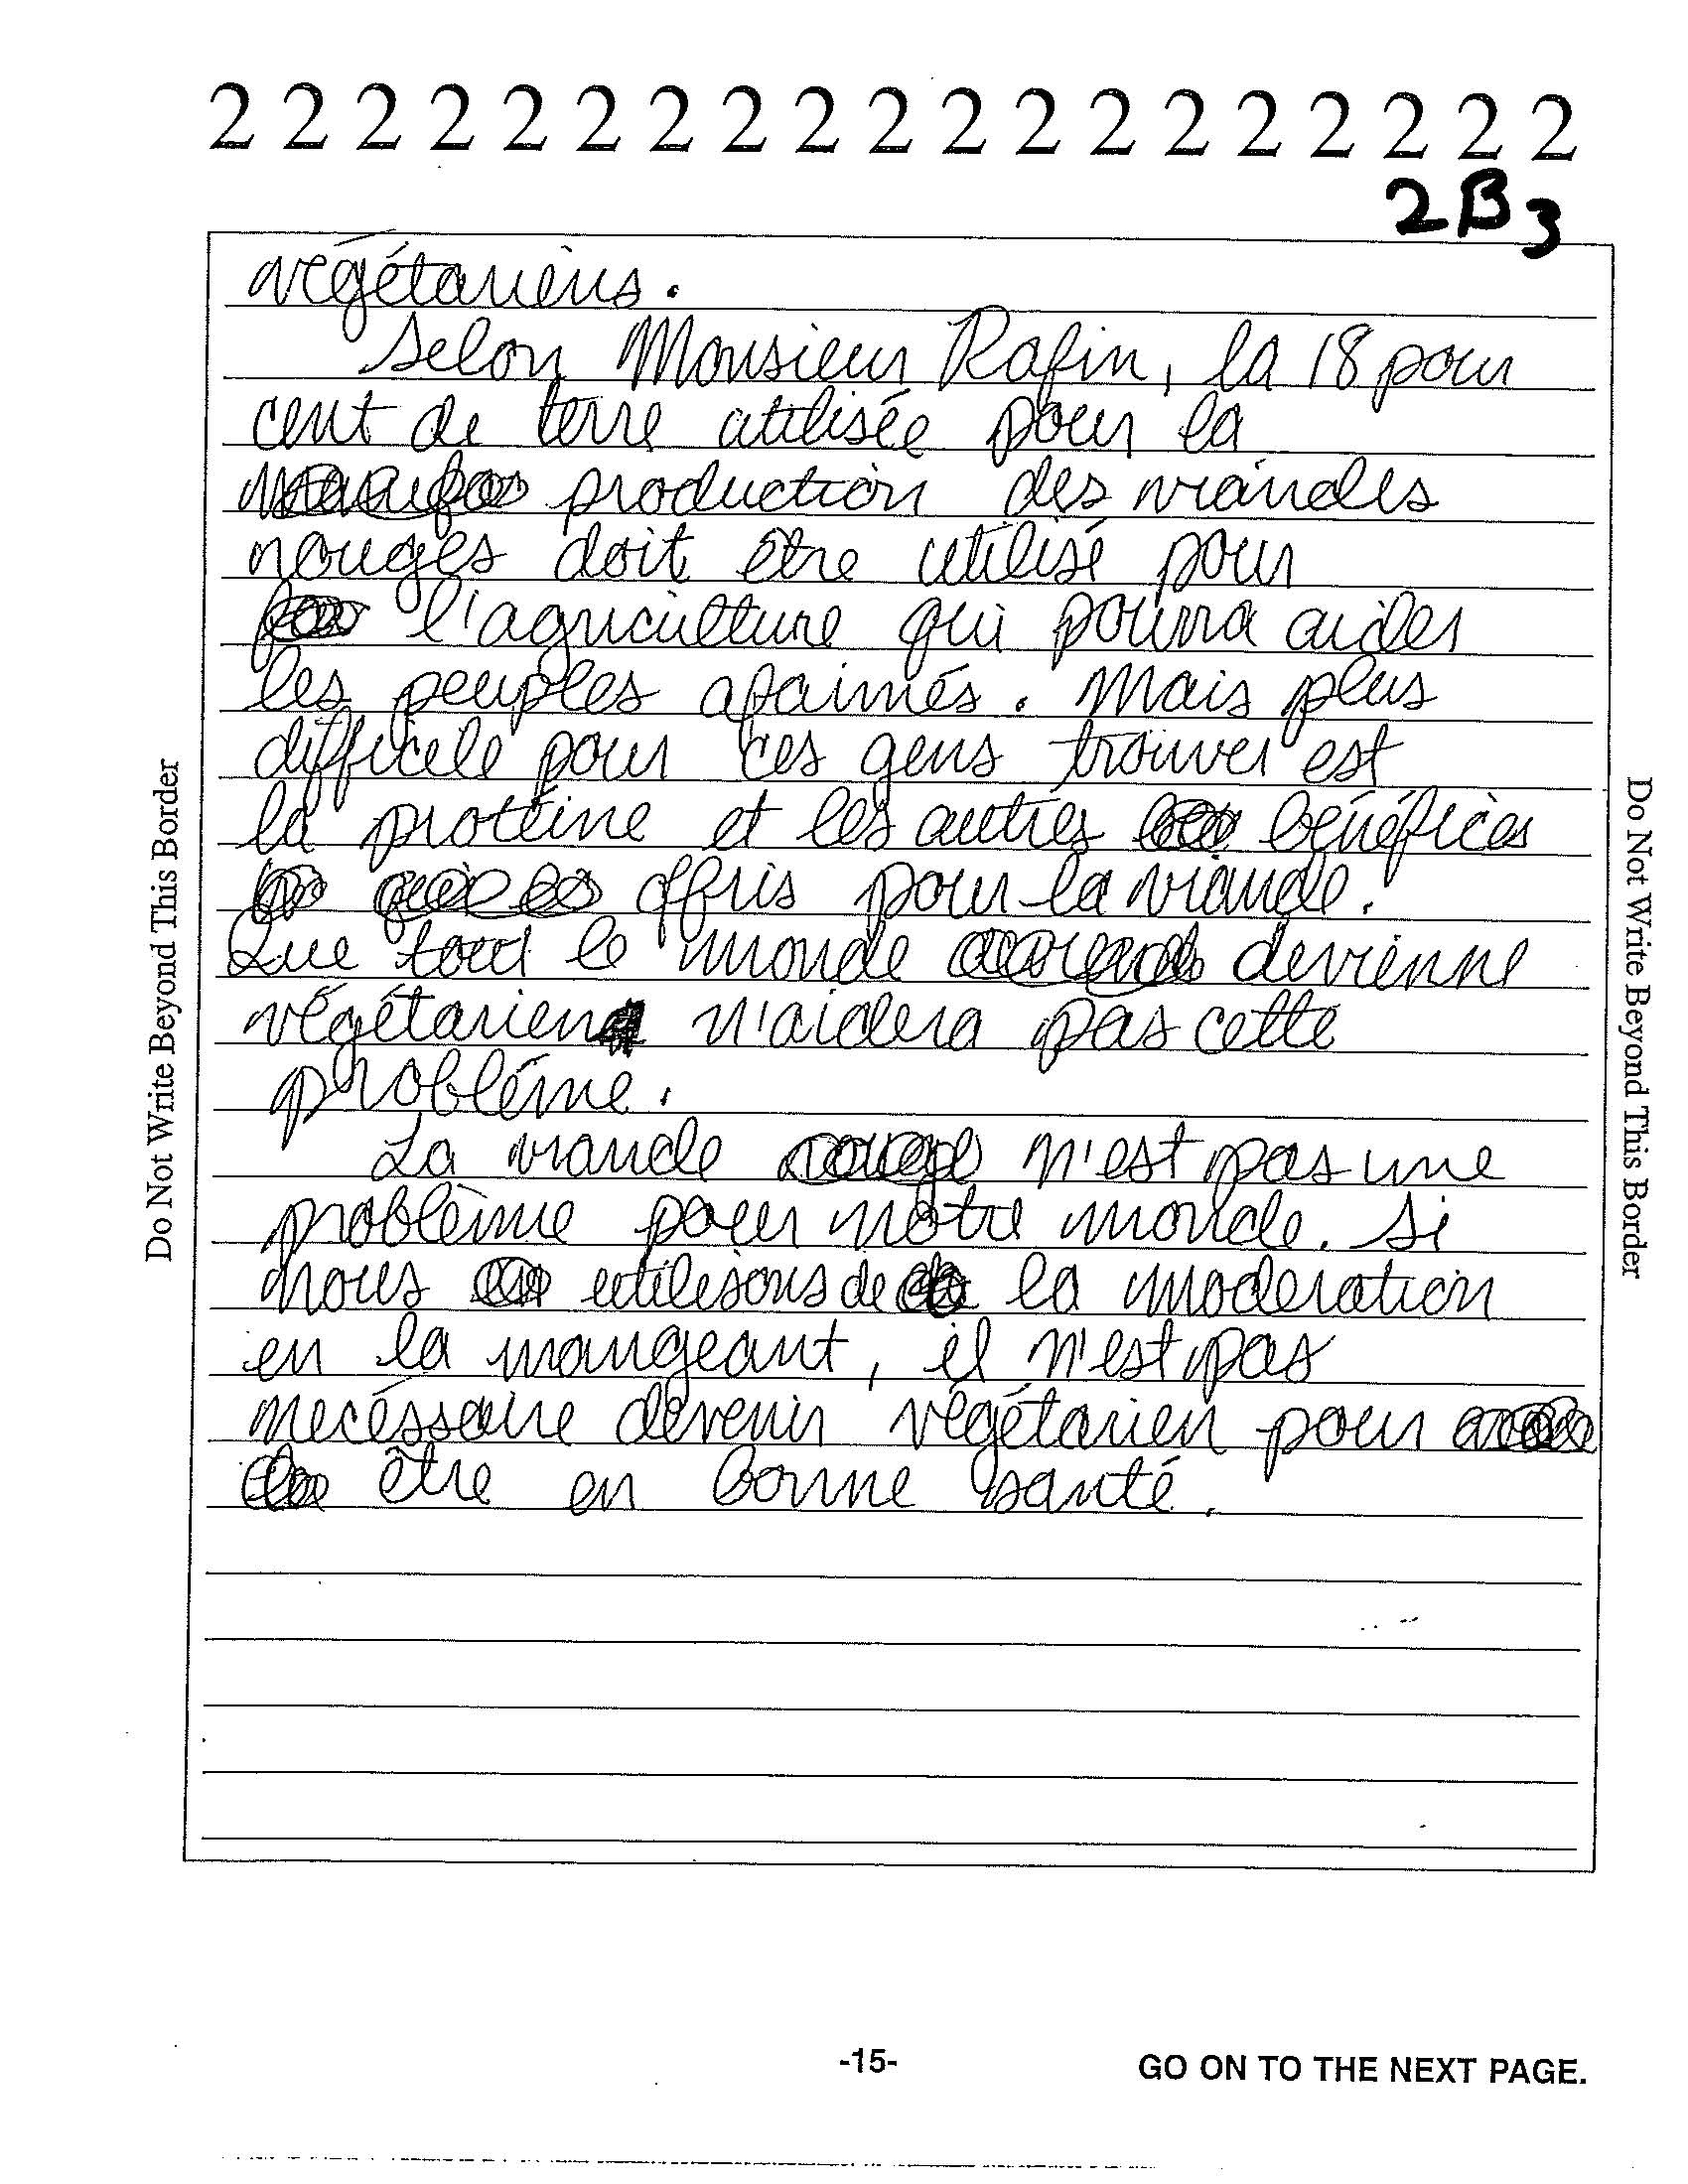 2 2 2 2 2 2 2 2 2 2 2 2 2 2 2 2 2 2 2
2B3
végétariens.
Selon Monsieur Rafin, la 18 pour
cent de terre utilisée pour la
production des viandes
rouges doit être utilisé pour
l'agriculture qui pourra aider
les peuples afaimés. Mais plus
difficile pour ces gens trouver est
la protéine et les autres bénéfices
offris pour la viande.
Que tout le monde devienne
végétarien n'aidera pas cette
probléme.
La viande n'est pas une
problème pour notre monde. Si
nous utilisons de la moderation
en la mangeant, il n'est pas
necéssaire devenir végétarien pour
être en bonne santé.
Do Not Write Beyond This Border
Do Not Write Beyond This Border
-15-
GO ON TO THE NEXT PAGE.